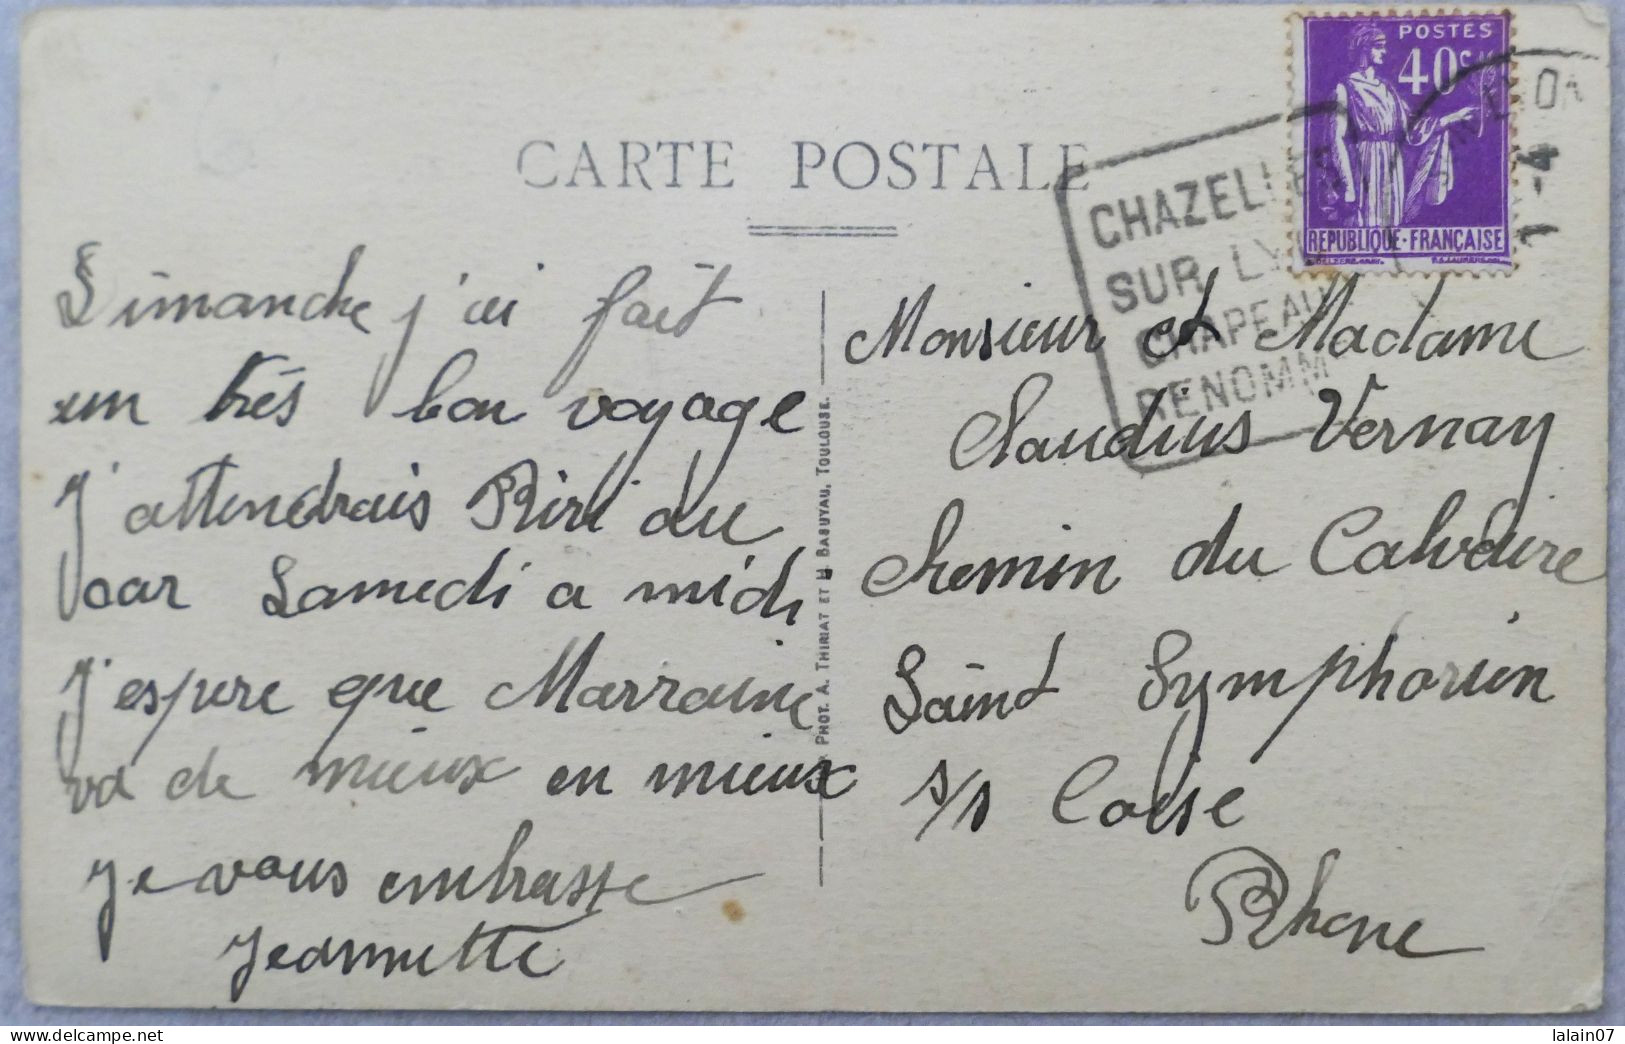 CARTE POSTALE
POSTES
40 c
REPUBLIQUE · FRANÇAISE
CHAZELLES
SUR LY
CHAPEAU
RENOMM
7 - 4
Dimanche j'ai fait
un très bon voyage
J'attendrais Riri au
car Samedi a midi
J'espere que Marraine
va de mieux en mieux
Je vous embrasse
Jeannette
PHOT. A. THIRIAT ET H. BASUYAU, TOULOUSE.
Monsieur et Madame
Claudius Vernay
Chemin du Calvaire
Saint Symphorien
s/s Coise
Rhone
lalain07